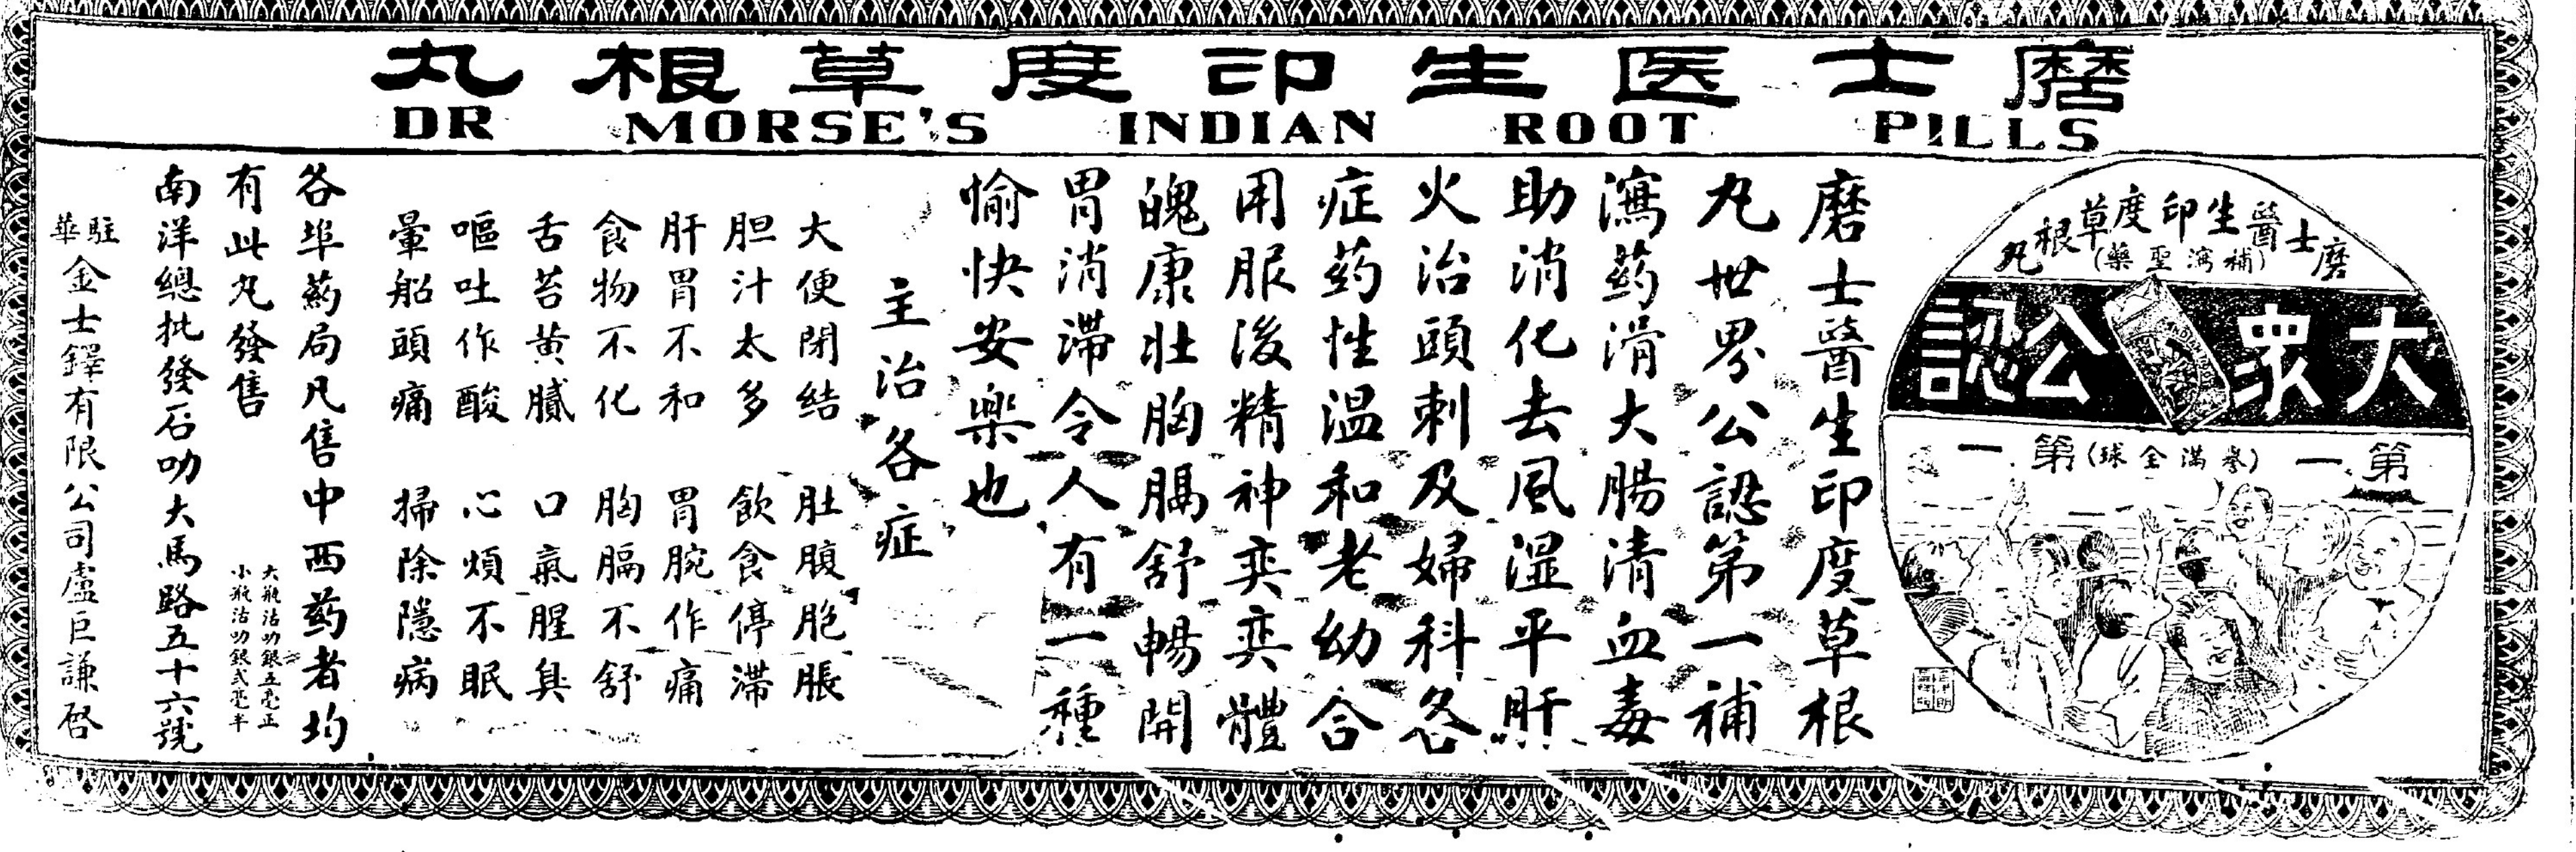 磨士医生印度草根丸
DR MORSE'S INDIAN ROOT PILLS
磨士醫生印度草根丸
(補瀉聖藥)
大衆公認
第一(誉滿全球)第一
磨士醫生印度草根
丸世界公認第一補
瀉药滑大腸清血毒
助消化去風湿平肝
火治頭刺及婦科各
症药性温和老幼合
用服後精神奕奕體
魄康壯胸膈舒暢開
胃消滯令人有一種
愉快安樂也
主治各症
大便閉結 肚腹胞脹
胆汁太多 飲食停滯
肝胃不和 胃腕作痛
食物不化 胸膈不舒
舌苔黄膩 口氣腥臭
嘔吐作酸 心煩不眠
暈船頭痛 掃除隱病
各埠葯局凡售中西药者均
有此丸發售
大瓶沽叻銀五毫正
小瓶沽叻銀式毫半
南洋總批發石叻大馬路五十六號
駐華金士鐸有限公司盧巨謙啓